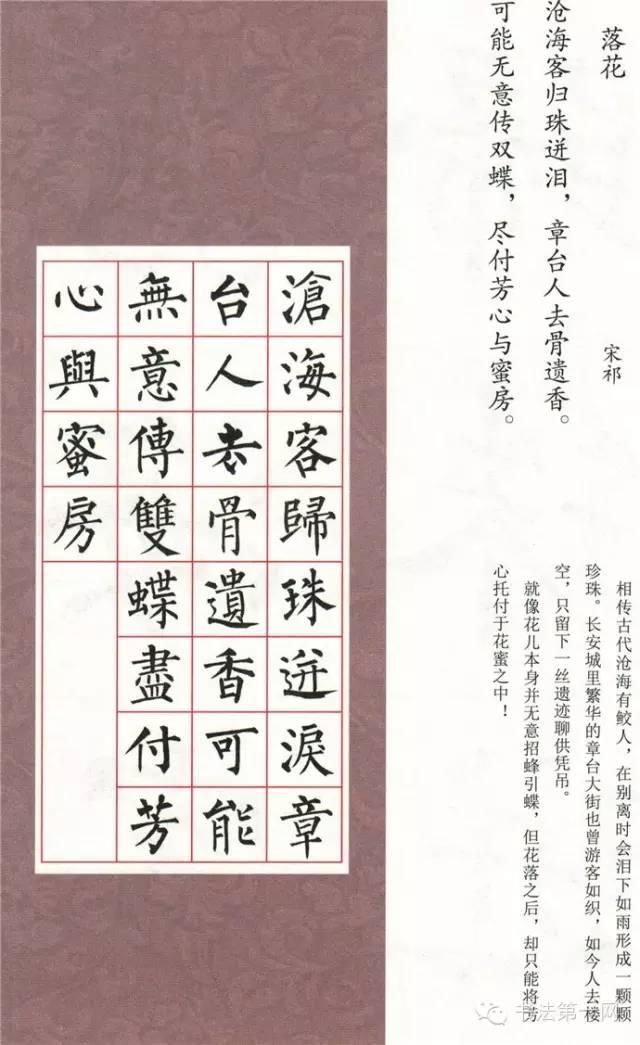 落花
宋祁
沧海客归珠迸泪，章台人去骨遗香。
可能无意传双蝶，尽付芳心与蜜房。
相传古代沧海有鲛人，在别离时会泪下如雨形成一颗颗
珍珠。长安城里繁华的章台大街也曾游客如织，如今人去楼
空，只留下一丝遗迹聊供凭吊。
就像花儿本身并无意招蜂引蝶，但花落之后，却只能将芳
心托付于花蜜之中！
滄海客歸珠迸淚章
台人去骨遺香可能
無意傳雙蝶盡付芳
心與蜜房
书法第一网